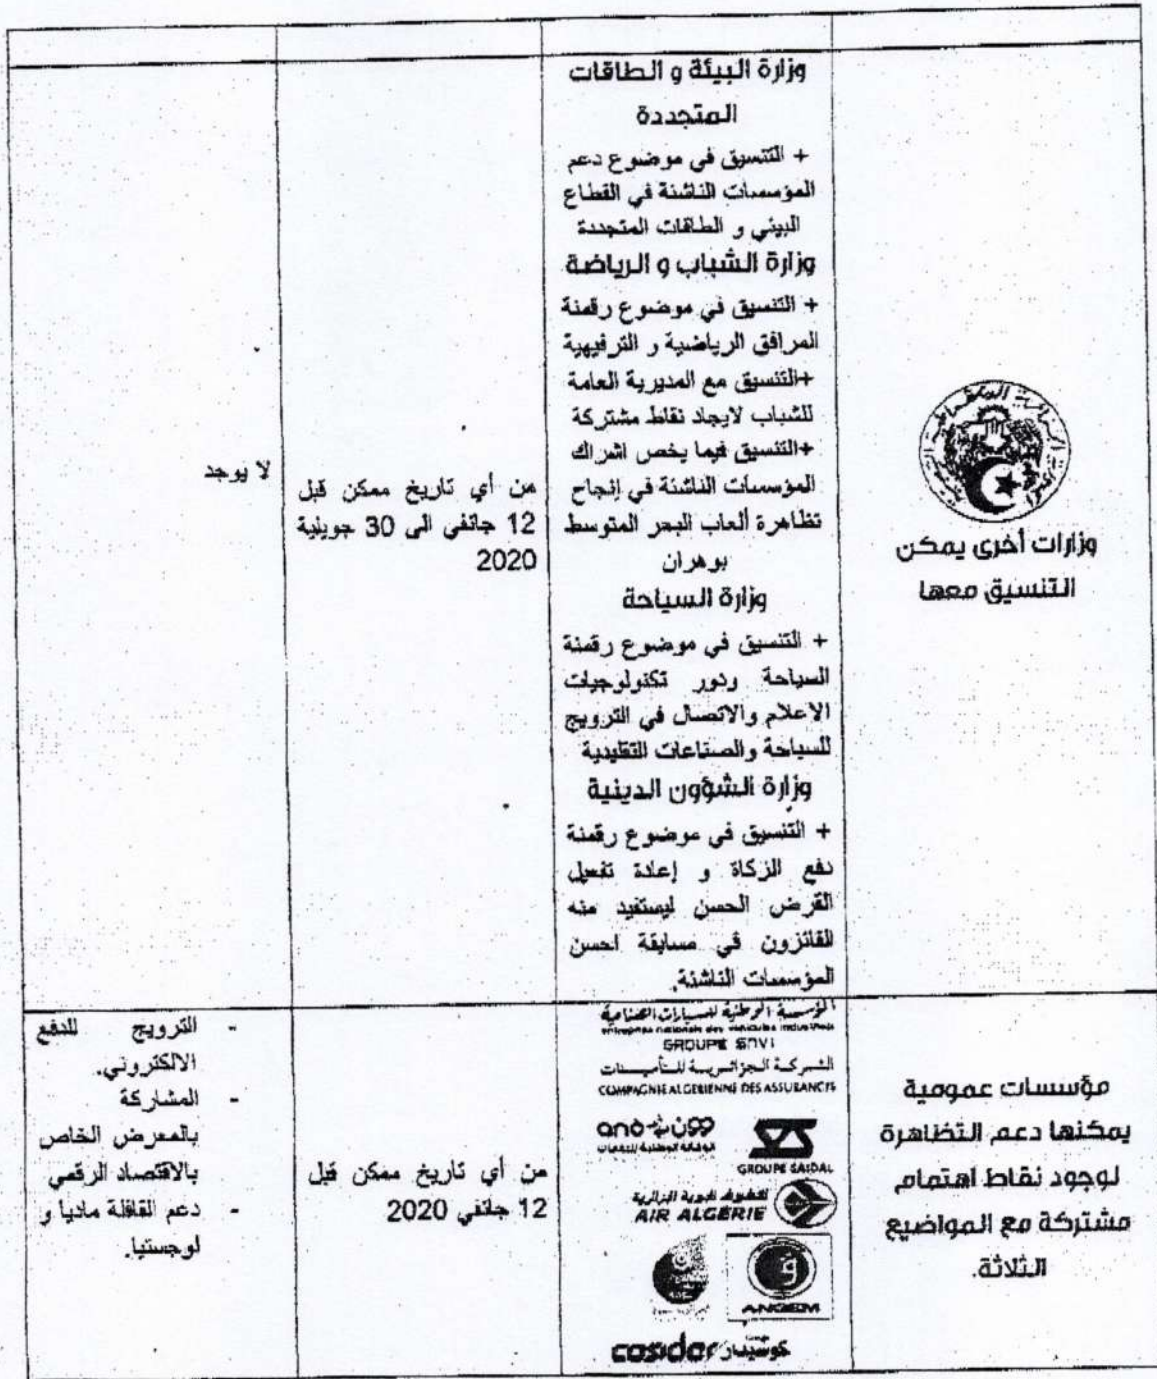 وزارات أخرى يمكن
التنسيق معها
وزارة البيئة و الطاقات
المتجددة
+ التنسيق في موضوع دعم
المؤسسات الناشئة في القطاع
البيئي و الطاقات المتجددة
وزارة الشباب و الرياضة
+ التنسيق في موضوع رقمنة
المرافق الرياضية و الترفيهية
+التنسيق مع المديرية العامة
للشباب لايجاد نقاط مشتركة
+التنسيق فيما يخص اشراك
المؤسسات الناشئة في إنجاح
تظاهرة ألعاب البحر المتوسط
بوهران
وزارة السياحة
+ التنسيق في موضوع رقمنة
السياحة ودور تكنولوجيات
الإعلام والاتصال في الترويج
للسياحة والصناعات التقليدية
وزارة الشؤون الدينية
+ التنسيق في موضوع رقمنة
دفع الزكاة و إعادة تفعيل
القرض الحسن ليستفيد منه
الفائزون في مسابقة احسن
المؤسسات الناشئة.
من أي تاريخ ممكن قبل
12 جانفي الى 30 جويلية
2020
لا يوجد
مؤسسات عمومية
يمكنها دعم التظاهرة
لوجود نقاط اهتمام
مشتركة مع المواضيع
الثلاثة.
المؤسسة الوطنية للسيارات الصناعية
entreprise nationale des véhicules industriels
GROUPE SNVI
الشركة الجزائرية للتأمينات
COMPAGNIE ALGERIENNE DES ASSURANCES
GROUPE SAIDAL
الخطوط الجوية الجزائرية
AIR ALGERIE
ANGEM
cosider كوسيدار
من أي تاريخ ممكن قبل
12 جانفي 2020
- الترويج للدفع
الالكتروني.
- المشاركة
بالمعرض الخاص
بالاقتصاد الرقمي
- دعم القافلة ماديا و
لوجستيا.